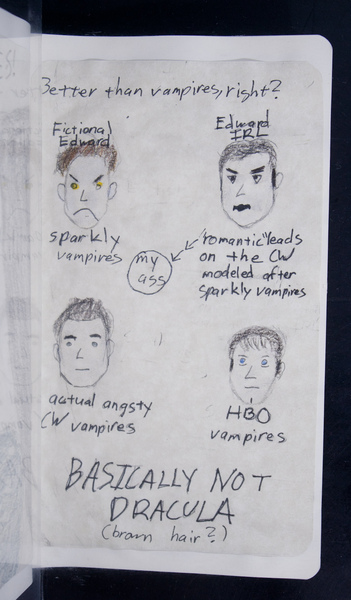 Better than vampires, right?
Fictional
Edward
sparkly
vampires
Edward
IRL
"romantic" leads
on the CW
modeled after
sparkly vampires
my
ass
actual angsty
CW vampires
HBO
vampires
BASICALLY NOT
DRACULA
(brown hair?)